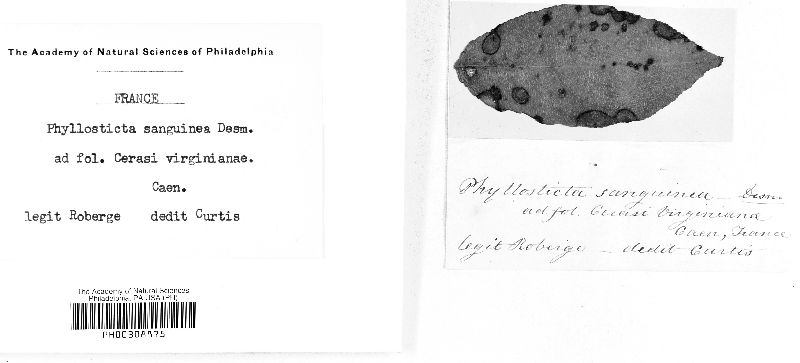 The Academy of Natural Sciences of Philadelphia
FRANCE
Phyllosticta sanguinea Desm.
ad fol. Cerasi virginianae.
Caen.
legit Roberge dedit Curtis
The Academy of Natural Sciences
Philadelphia, PA USA (PH)
Phyllosticta sanguinea Desm
ad fol. Cerasi Virginiana
Caen, France
legit Roberge - dedit Curtis